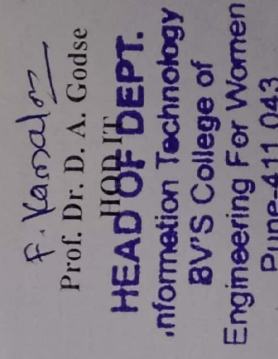 F. Kamalas
Prof. Dr. D. A. Godse
HOD IT
HEAD OF DEPT.
Information Technology
BV'S College of
Engineering For Women
Pune-411 043